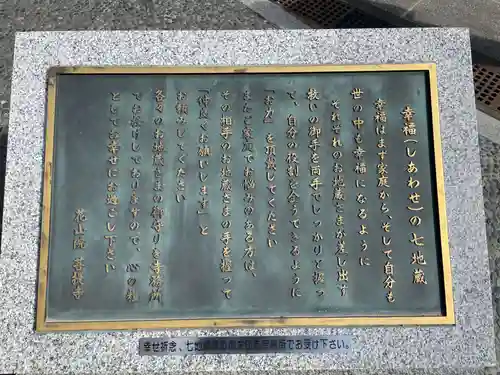 幸福(しあわせ)の七地蔵
幸福はまず家庭から、そして自分も
世の中も幸福になるように
それぞれのお地蔵さまが差し出す
救いの御手を両手でしっかりと握っ
て、自分の役割を全うできるように
「お力」を頂戴してください
またご家庭でお悩みのある方は、
その相手のお地蔵さまの手を握って
「仲直りお願いします」と
お頼みしてください
各々のお地蔵さまの御守りを寺務所
でお分けしておりますので、心の糧
としてお幸せにお過ごし下さい
花山院 菩提寺
幸せ祈き、七地蔵
でお受け下さい。